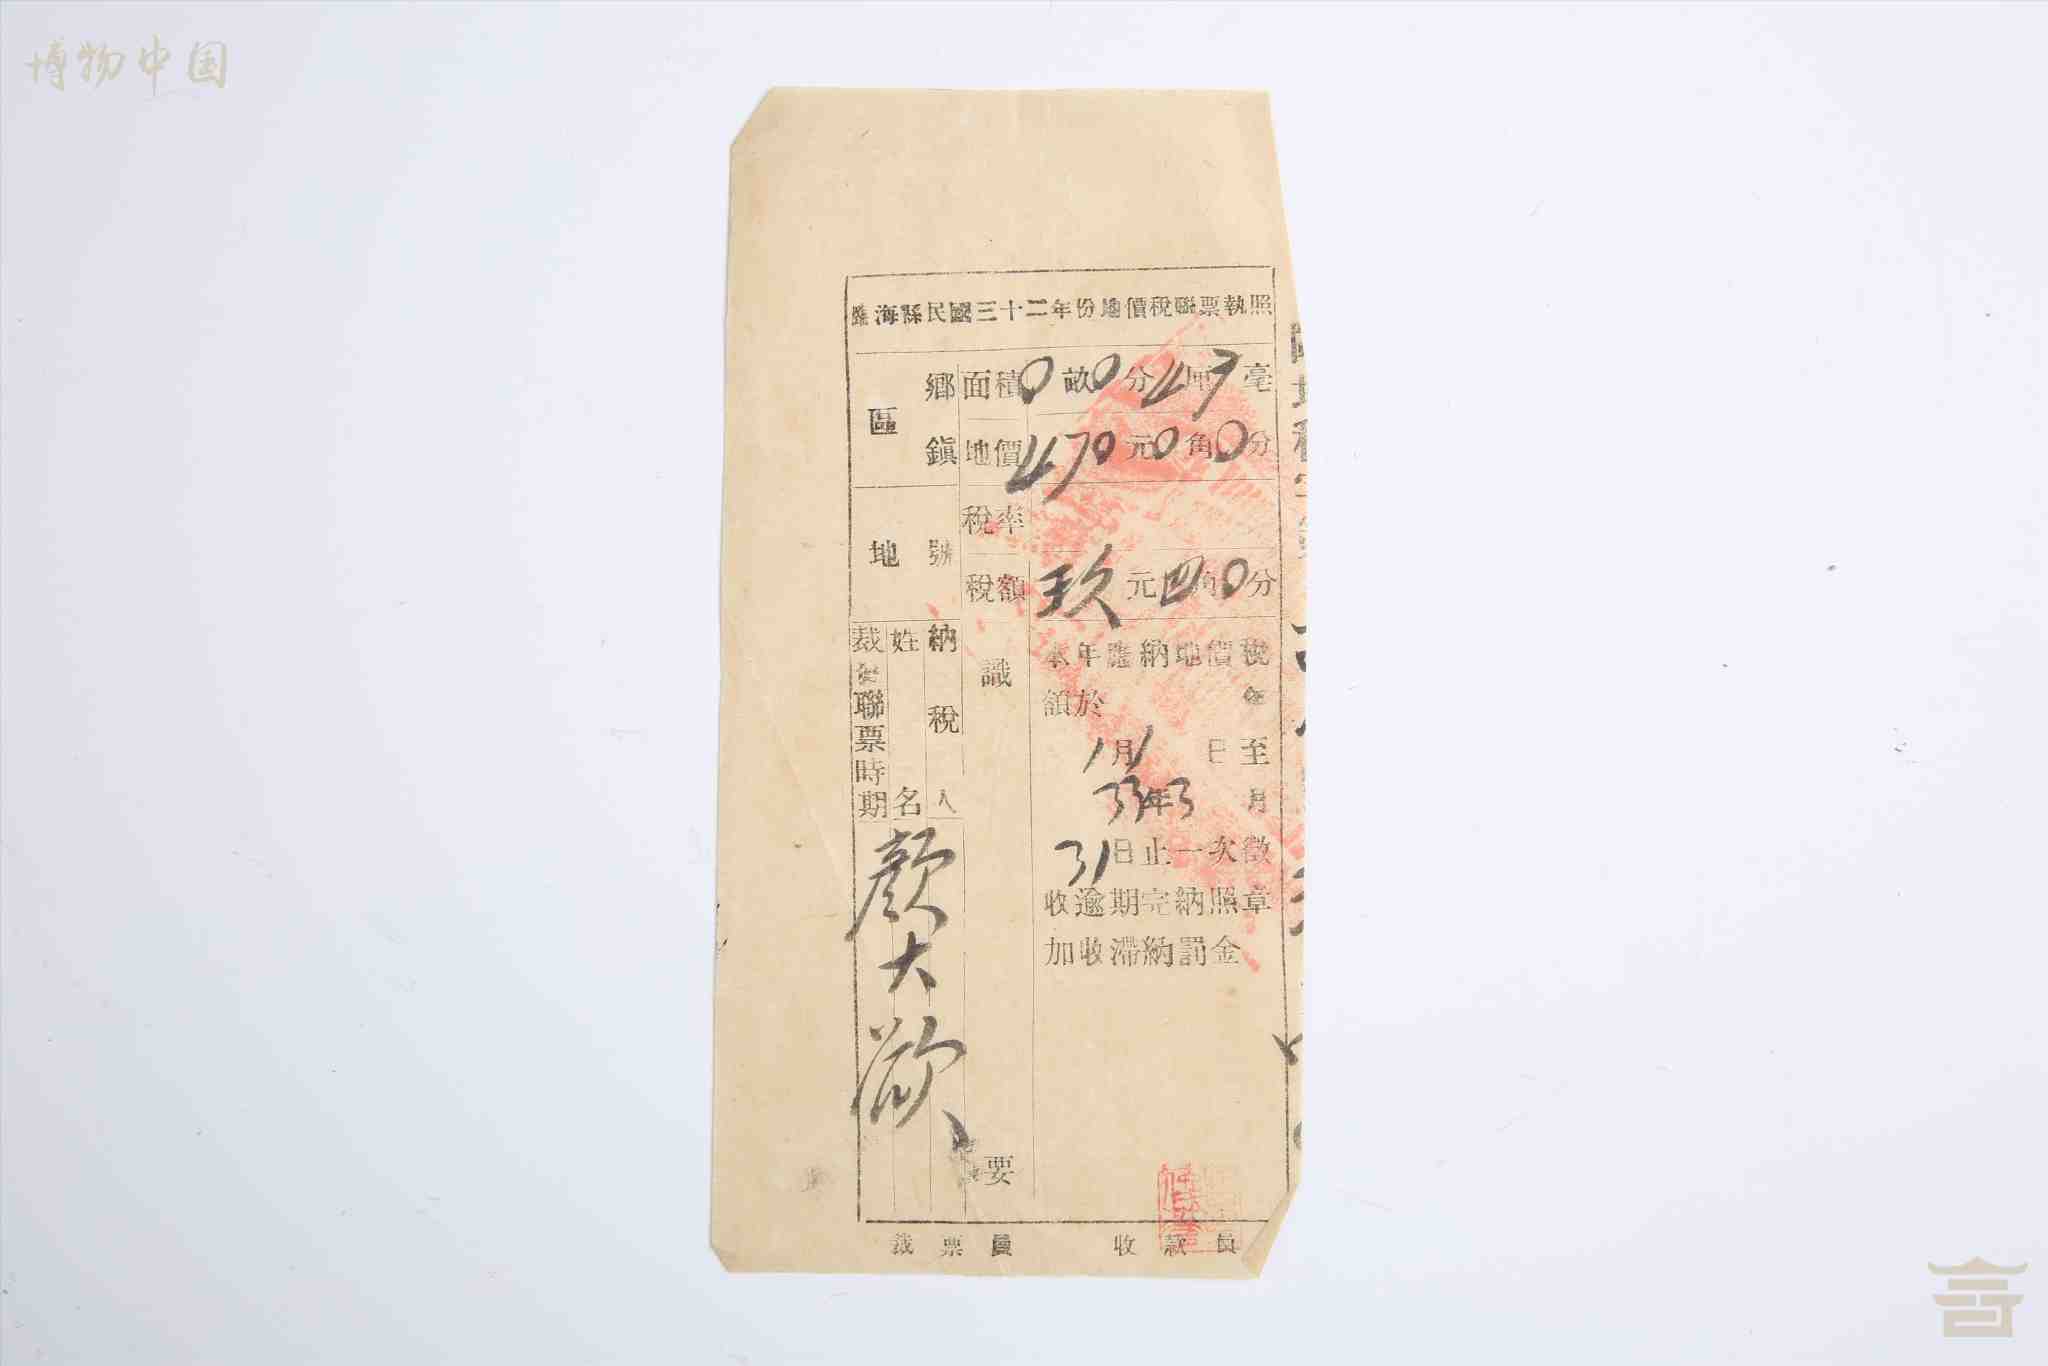 博物中国
臨海縣民國三十二年份地價稅聯票執照
區 鄉鎮
面積 0畝0分47厘毫
地價 470元0角0分
地號
稅率
稅額 玖元四角0分
納稅人
姓名
顏大
裁發聯票時期
識
要
本年應納地價稅
額於 年
1月1日至
33年3月
31日止一次徵
收逾期完納照章
加收滯納罰金
裁票員 收款員